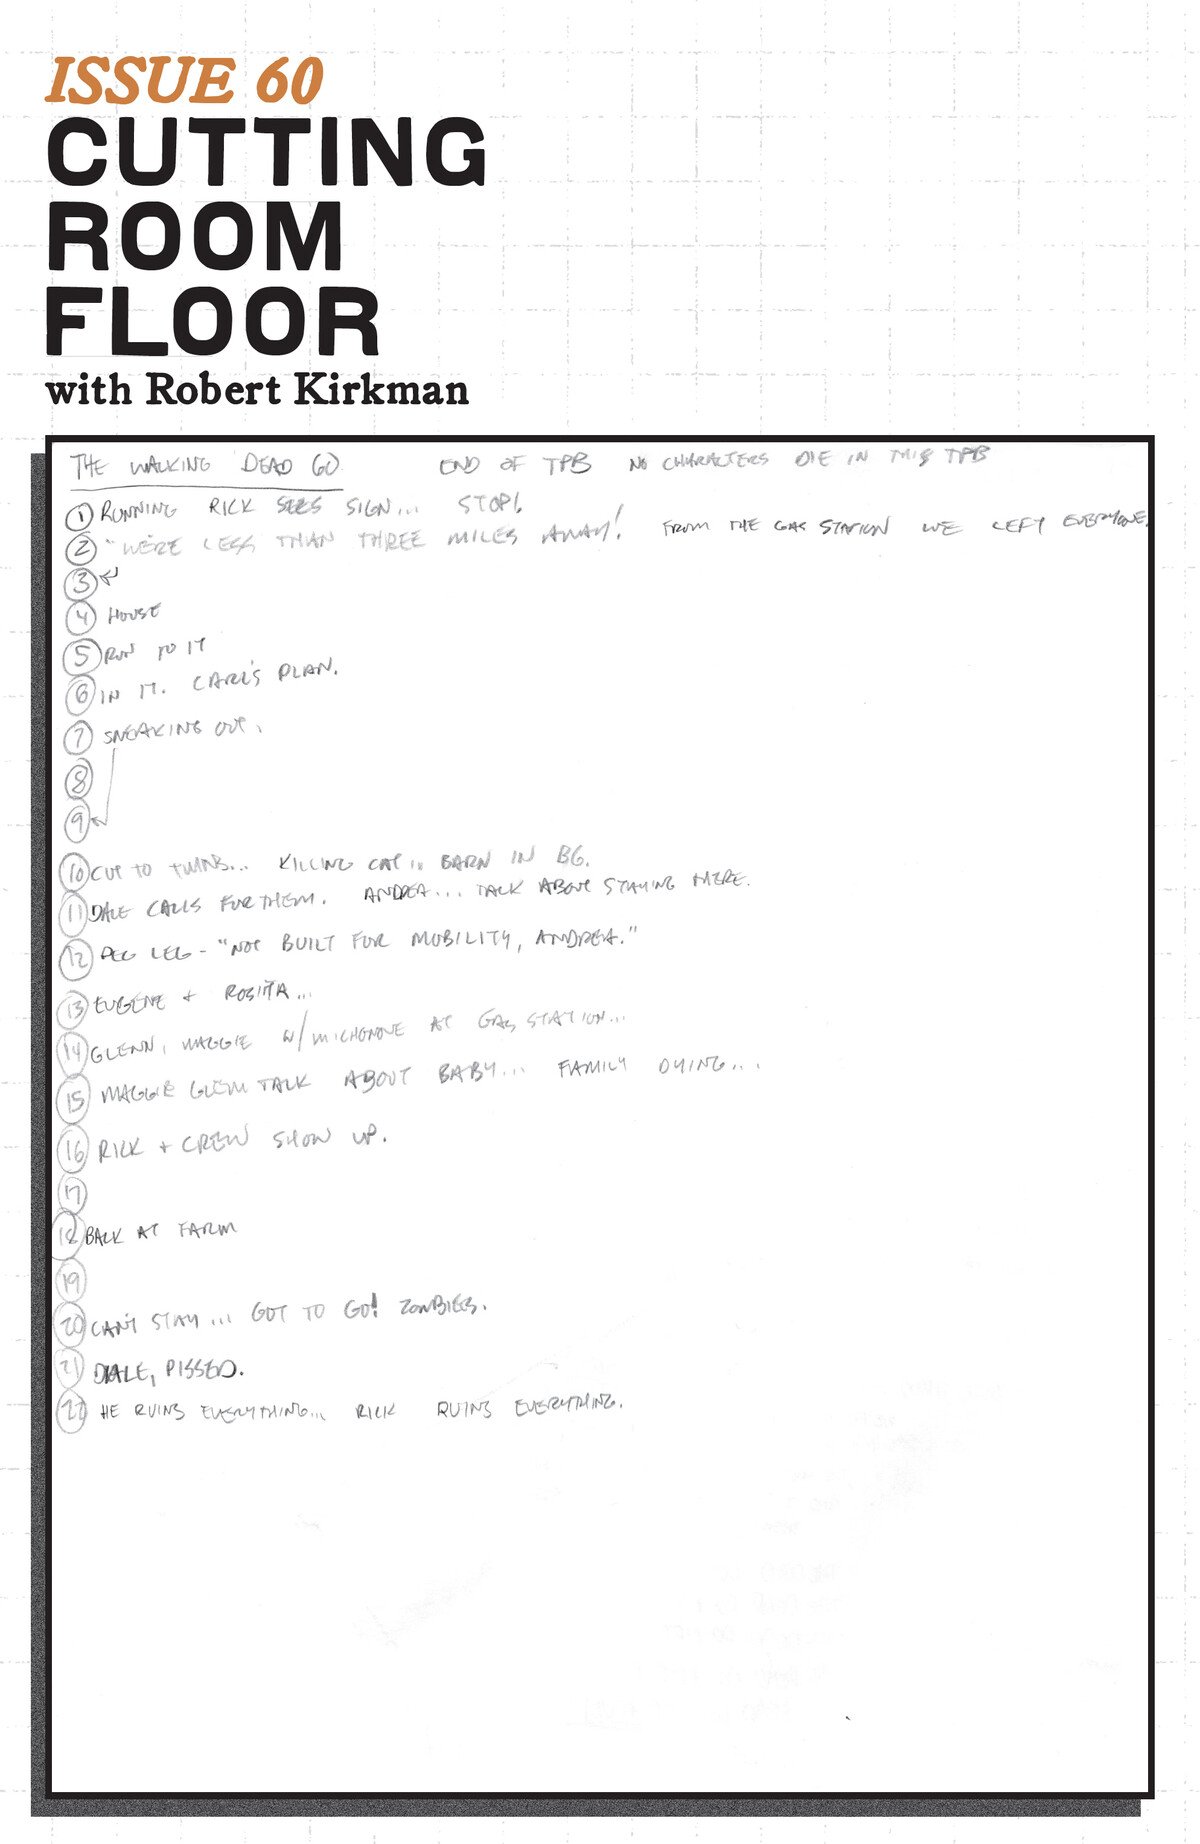 ISSUE 60
CUTTING
ROOM
FLOOR
with Robert Kirkman
THE WALKING DEAD 60 END OF TPB NO CHARACTERS DIE IN THIS TPB
1 RUNNING RICK SEES SIGN... STOP!
2 "WE'RE LESS THAN THREE MILES AWAY! FROM THE GAS STATION WE LEFT EVERYONE.
3
4 HOUSE
5 RUN TO IT
6 IN IT. CARL'S PLAN.
7 SNEAKING OUT.
8
9
10 CUT TO TWINS... KILLING CAT.. BARN IN BG.
11 DALE CALLS FOR THEM. ANDREA... TALK ABOUT STAYING HERE.
12 PEG LEG - "NOT BUILT FOR MOBILITY, ANDREA."
13 EUGENE + ROSITA...
14 GLENN, MAGGIE W/MICHONNE AT GAS STATION...
15 MAGGIE GLENN TALK ABOUT BABY... FAMILY DYING...
16 RICK + CREW SHOW UP.
17
18 BACK AT FARM
19
20 CAN'T STAY... GOT TO GO! ZOMBIES.
21 DALE, PISSED.
22 HE RUINS EVERYTHING... RICK RUINS EVERYTHING.